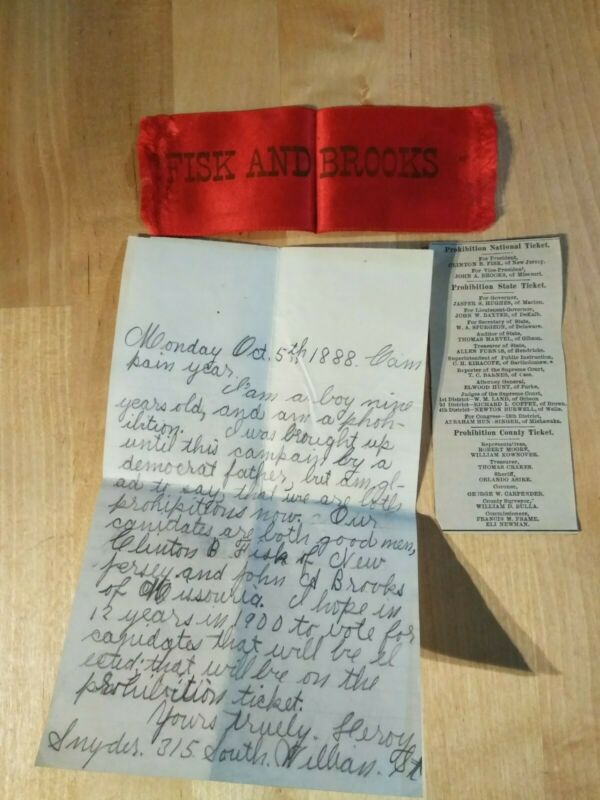 FISK AND BROOKS
Monday Oct. 5th 1888. Cam
pain year.
I am a boy nine
years old, and am a phoh-
ibition. I was brought up
until this campain by a
democrat father, but Im gl-
ad to say that we are both
prohibitions now. Our
canidates are both good men,
Clinton B Fisk of New
Jersey and John A Brooks
of Missouria. I hope in
12 years in 1900 to vote for
canidates that will be el
ected that will be on the
prohibition ticket.
Yours truely. Leroy
Snyder. 315 South. William. St
Prohibition National Ticket.
For President,
CLINTON B. FISK, of New Jersey.
For Vice-President,
JOHN A. BROOKS, of Missouri.
Prohibition State Ticket.
For Governor,
JASPER S. HUGHES, of Marion.
For Lieutenant-Governor,
JOHN W. BAXTER, of DeKalb.
For Secretary of State,
W. A. SPURGEON, of Delaware.
Auditor of State,
THOMAS MARVEL, of Gibson.
Treasurer of State,
ALLEN FURNAS, of Hendricks.
Superintendent of Public Instruction,
C. H. KIRACOFE, of Bartholomew.
Reporter of the Supreme Court,
T. C. BARNES, of Cass.
Attorney General,
ELWOOD HUNT, of Parke.
Judges of the Supreme Court,
1st District—W. M. LAND, of Gibson
2d District—RICHARD L. COFFEY, of Brown.
4th District—NEWTON BURWELL, of Wells.
For Congress—13th District,
ABRAHAM HUNSINGER, of Mishawaka.
Prohibition County Ticket.
Representatives,
ROBERT MOORE,
WILLIAM KOWNOVER.
Treasurer,
THOMAS CRAKER.
Sheriff,
ORLANDO ASIRE.
Coroner,
GEORGE W. CARPENDER.
County Surveyor,
WILLIAM D. BULLA.
Commissioners,
FRANCIS M. FRAME,
ELI NEWMAN.